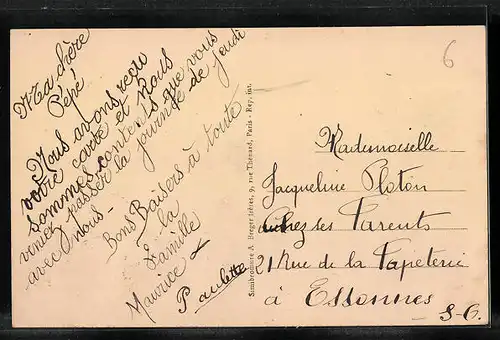 Ma chère
Pépé
Nous avons reçu
votre carte et nous
sommes contents que vous
veniez passer la journée de jeudi
avec nous.
Bons Baisers à toute
la
Famille
Maurice &
Paulette
Sombromine A. Breger frères, 9, rue Thénard, Paris - Rep. int.
6
Mademoiselle
Jacqueline Ploton
chez ses Parents
21 Rue de la Papeterie
à Essonnes
S-O.